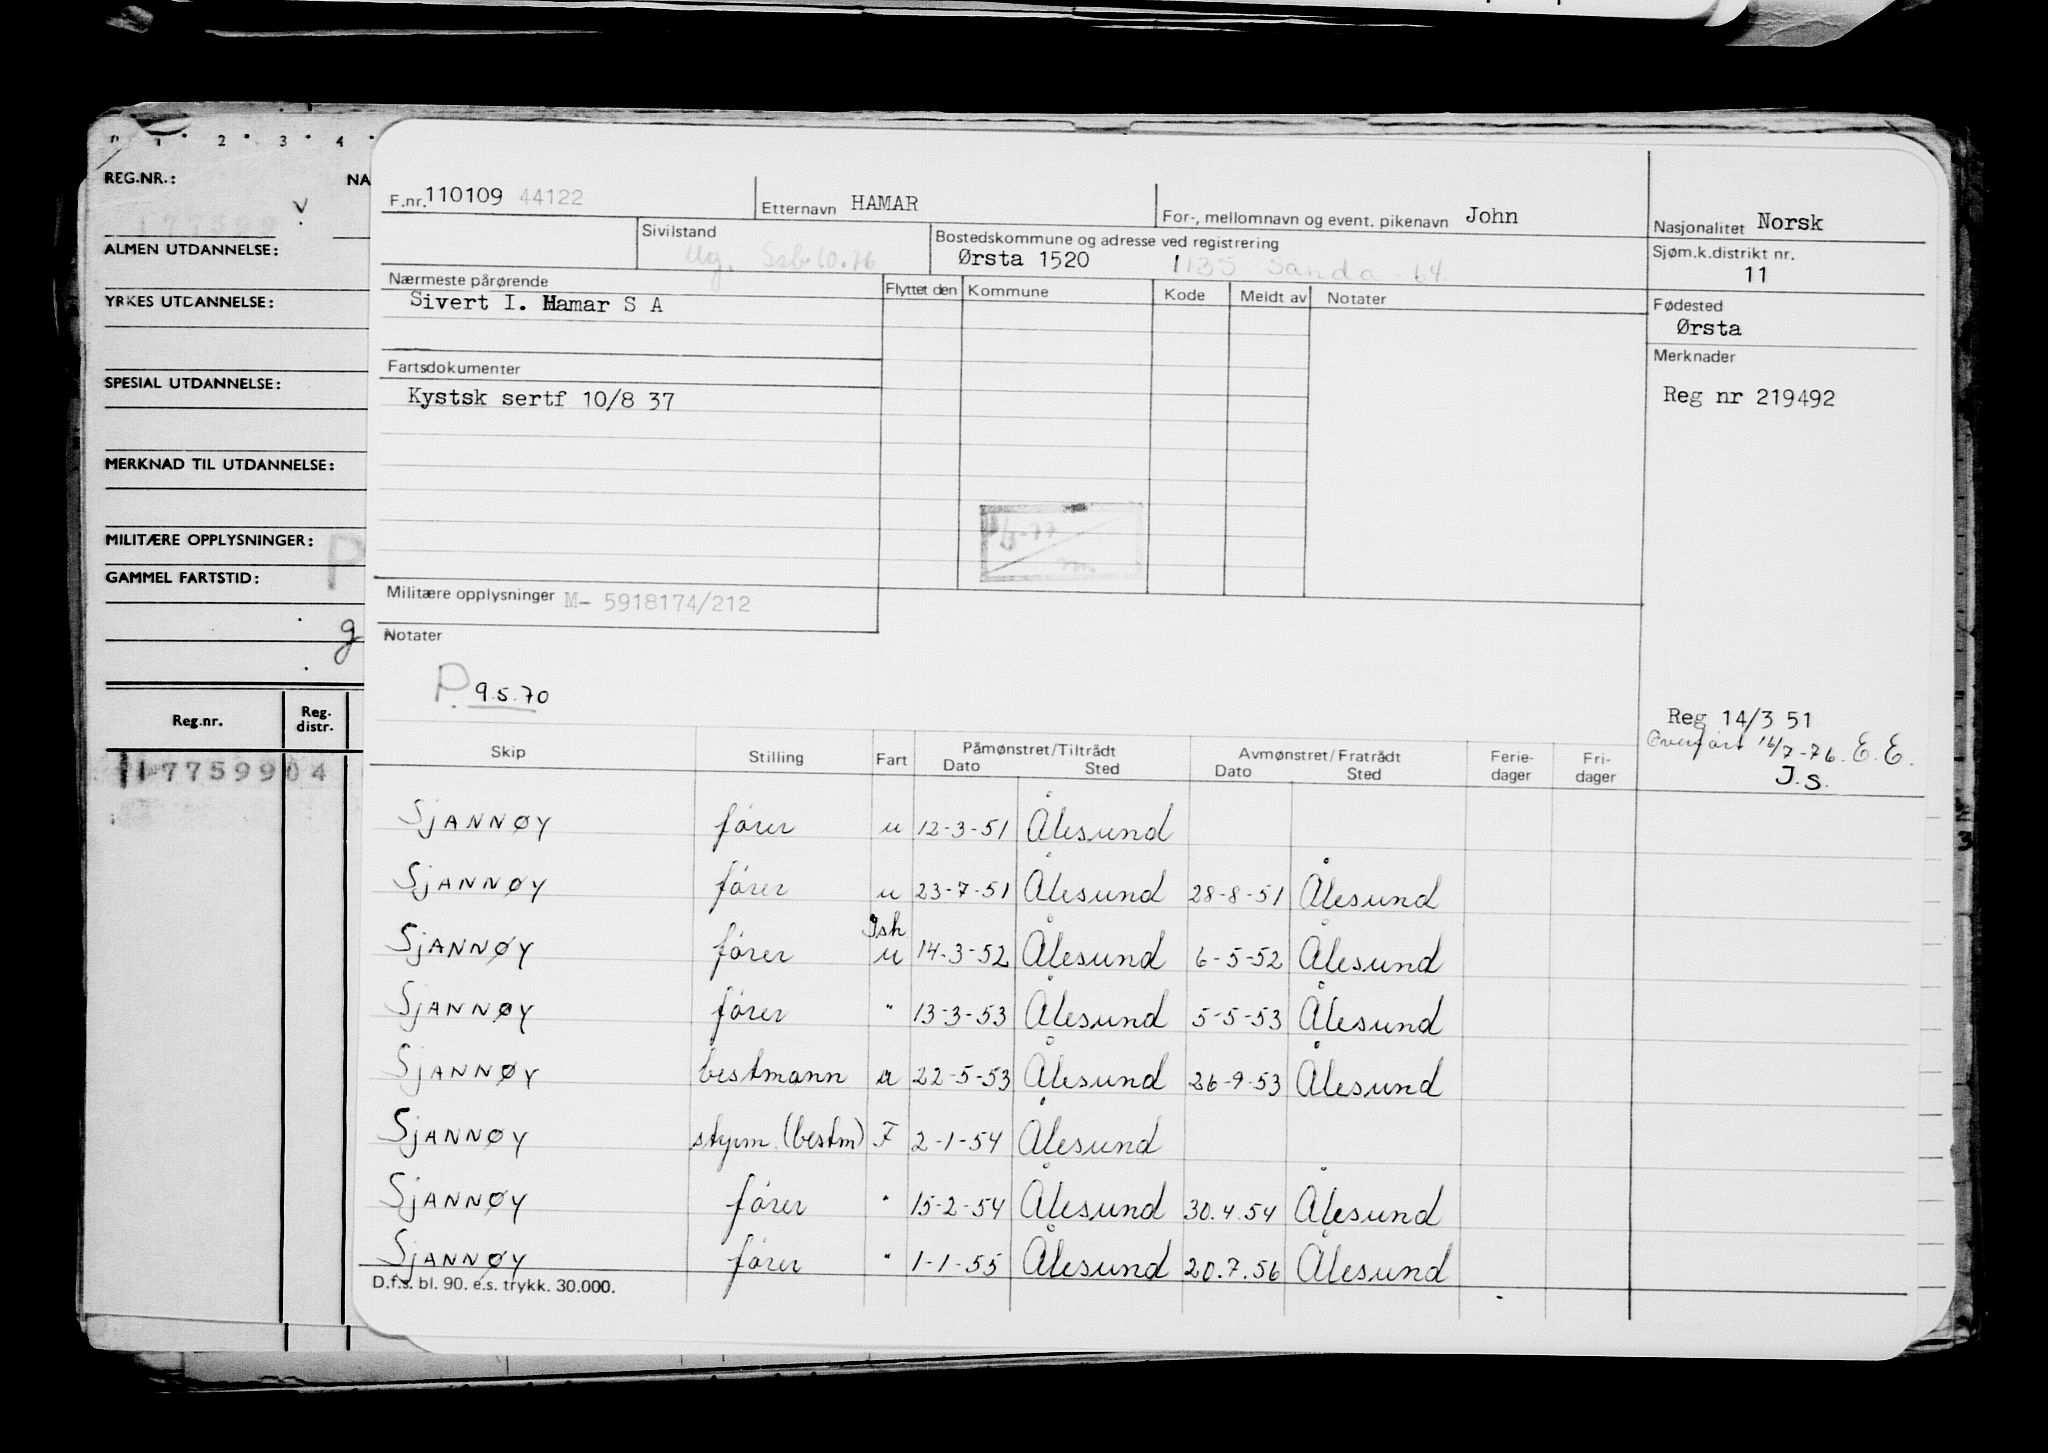 1 · 2 · 3 · 4 ·
REG.NR.: NA
ALMEN UTDANNELSE:
YRKES UTDANNELSE:
SPESIAL UTDANNELSE:
MERKNAD TIL UTDANNELSE:
MILITÆRE OPPLYSNINGER: P
GAMMEL FARTSTID:
g
Reg.nr. Reg. distr.
17759904
F.nr. 110109 44122 Etternavn HAMAR For-, mellomnavn og event. pikenavn John Nasjonalitet Norsk
Sivilstand Ug. Ssb 10.76 Bostedskommune og adresse ved registrering Sjøm.k.distrikt nr.
Ørsta 1520 1135 Sanda 64 11
Nærmeste pårørende Flyttet den Kommune Kode Meldt av Notater Fødested
Sivert I. Hamar S A Ørsta
Fartsdokumenter Merknader
Kystsk sertf 10/8 37 Reg nr 219492
Militære opplysninger M- 5918174/212
Notater
P. 9.5.70
Reg 14/3 51
Overført 16/7-76. E.E.
J.S.
Skip Stilling Fart Påmønstret/Tiltrådt Avmønstret/Fratrådt Ferie- Fri-
Dato Sted Dato Sted dager dager
SJANNØY fører u 12-3-51 Ålesund
SJANNØY fører u 23-7-51 Ålesund 28-8-51 Ålesund
Ish
SJANNØY fører u 14-3-52 Ålesund 6-5-52 Ålesund
SJANNØY fører " 13-3-53 Ålesund 5-5-53 Ålesund
SJANNØY bestmann u 22-5-53 Ålesund 26-9-53 Ålesund
SJANNØY styrm. (bestm) F 2-1-54 Ålesund
SJANNØY fører " 15-2-54 Ålesund 30.4.54 Ålesund
SJANNØY fører " 1-1-55 Ålesund 20.7.56 Ålesund
D.f.s. bl. 90. e.s. trykk. 30.000.
3